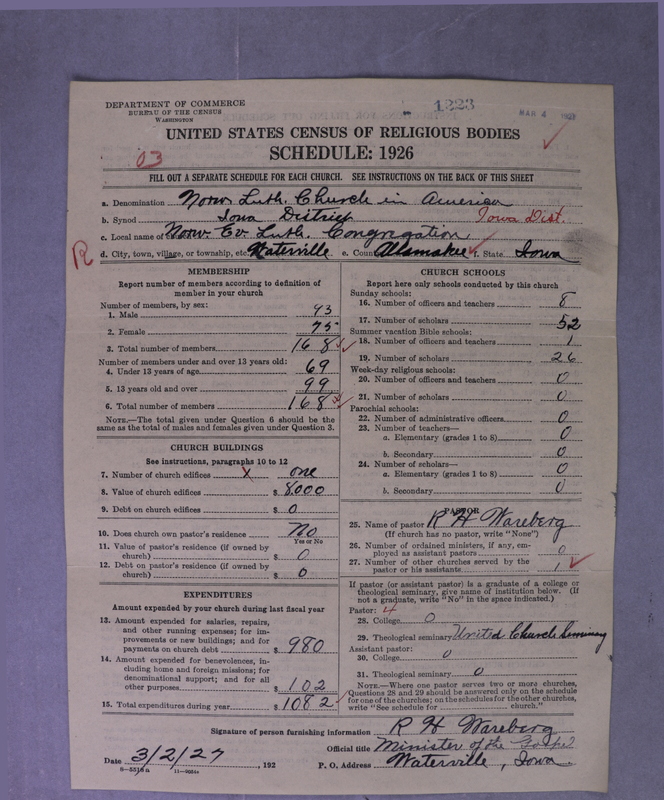 DEPARTMENT OF COMMERCE
BUREAU OF THE CENSUS
WASHINGTON
1223
MAR 4 1927
UNITED STATES CENSUS OF RELIGIOUS BODIES
SCHEDULE: 1926
03
FILL OUT A SEPARATE SCHEDULE FOR EACH CHURCH. SEE INSTRUCTIONS ON THE BACK OF THIS SHEET
a. Denomination Norw. Luth. Church in America
b. Synod Iowa District Iowa Dist.
c. Local name of Norw Ev. Luth. Congregation
R
d. City, town, village, or township, etc. Waterville e. County Allamakee f. State Iowa
MEMBERSHIP
Report number of members according to definition of
member in your church
Number of members, by sex:
1. Male 93
2. Female 75
3. Total number of members 168
Number of members under and over 13 years old:
4. Under 13 years of age 69
5. 13 years old and over 99
6. Total number of members 168
NOTE.—The total given under Question 6 should be the
same as the total of males and females given under Question 3.
CHURCH BUILDINGS
See instructions, paragraphs 10 to 12
7. Number of church edifices x one
8. Value of church edifices $ 8,000
9. Debt on church edifices $ 0
10. Does church own pastor's residence No
Yes or No
11. Value of pastor's residence (if owned by
church) $ 0
12. Debt on pastor's residence (if owned by
church) $ 0
EXPENDITURES
Amount expended by your church during last fiscal year
13. Amount expended for salaries, repairs,
and other running expenses; for im-
provements or new buildings; and for
payments on church debt $ 980
14. Amount expended for benevolences, in-
cluding home and foreign missions; for
denominational support; and for all
other purposes $ 102
15. Total expenditures during year $ 1082
CHURCH SCHOOLS
Report here only schools conducted by this church
Sunday schools:
16. Number of officers and teachers 8
17. Number of scholars 52
Summer vacation Bible schools:
18. Number of officers and teachers 1
19. Number of scholars 26
Week-day religious schools:
20. Number of officers and teachers 0
21. Number of scholars 0
Parochial schools:
22. Number of administrative officers 0
23. Number of teachers—
a. Elementary (grades 1 to 8) 0
b. Secondary 0
24. Number of scholars—
a. Elementary (grades 1 to 8) 0
b. Secondary 0
PASTOR
25. Name of pastor R H Wareberg
(If church has no pastor, write "None")
26. Number of ordained ministers, if any, em-
ployed as assistant pastors 0
27. Number of other churches served by the
pastor or his assistants 1
If pastor (or assistant pastor) is a graduate of a college or
theological seminary, give name of institution below. (If
not a graduate, write "No" in the space indicated.)
Pastor: 4
28. College 0
29. Theological seminary United Church Seminary
Assistant pastor:
30. College 0
31. Theological seminary 0
NOTE.—Where one pastor serves two or more churches,
Questions 28 and 29 should be answered only on the schedule
for one of the churches; on the schedules for the other churches,
write "See schedule for church."
Signature of person furnishing information R H Wareberg
Official title Minister of the Gospel
Date 3/2/27, 192 P. O. Address Waterville, Iowa